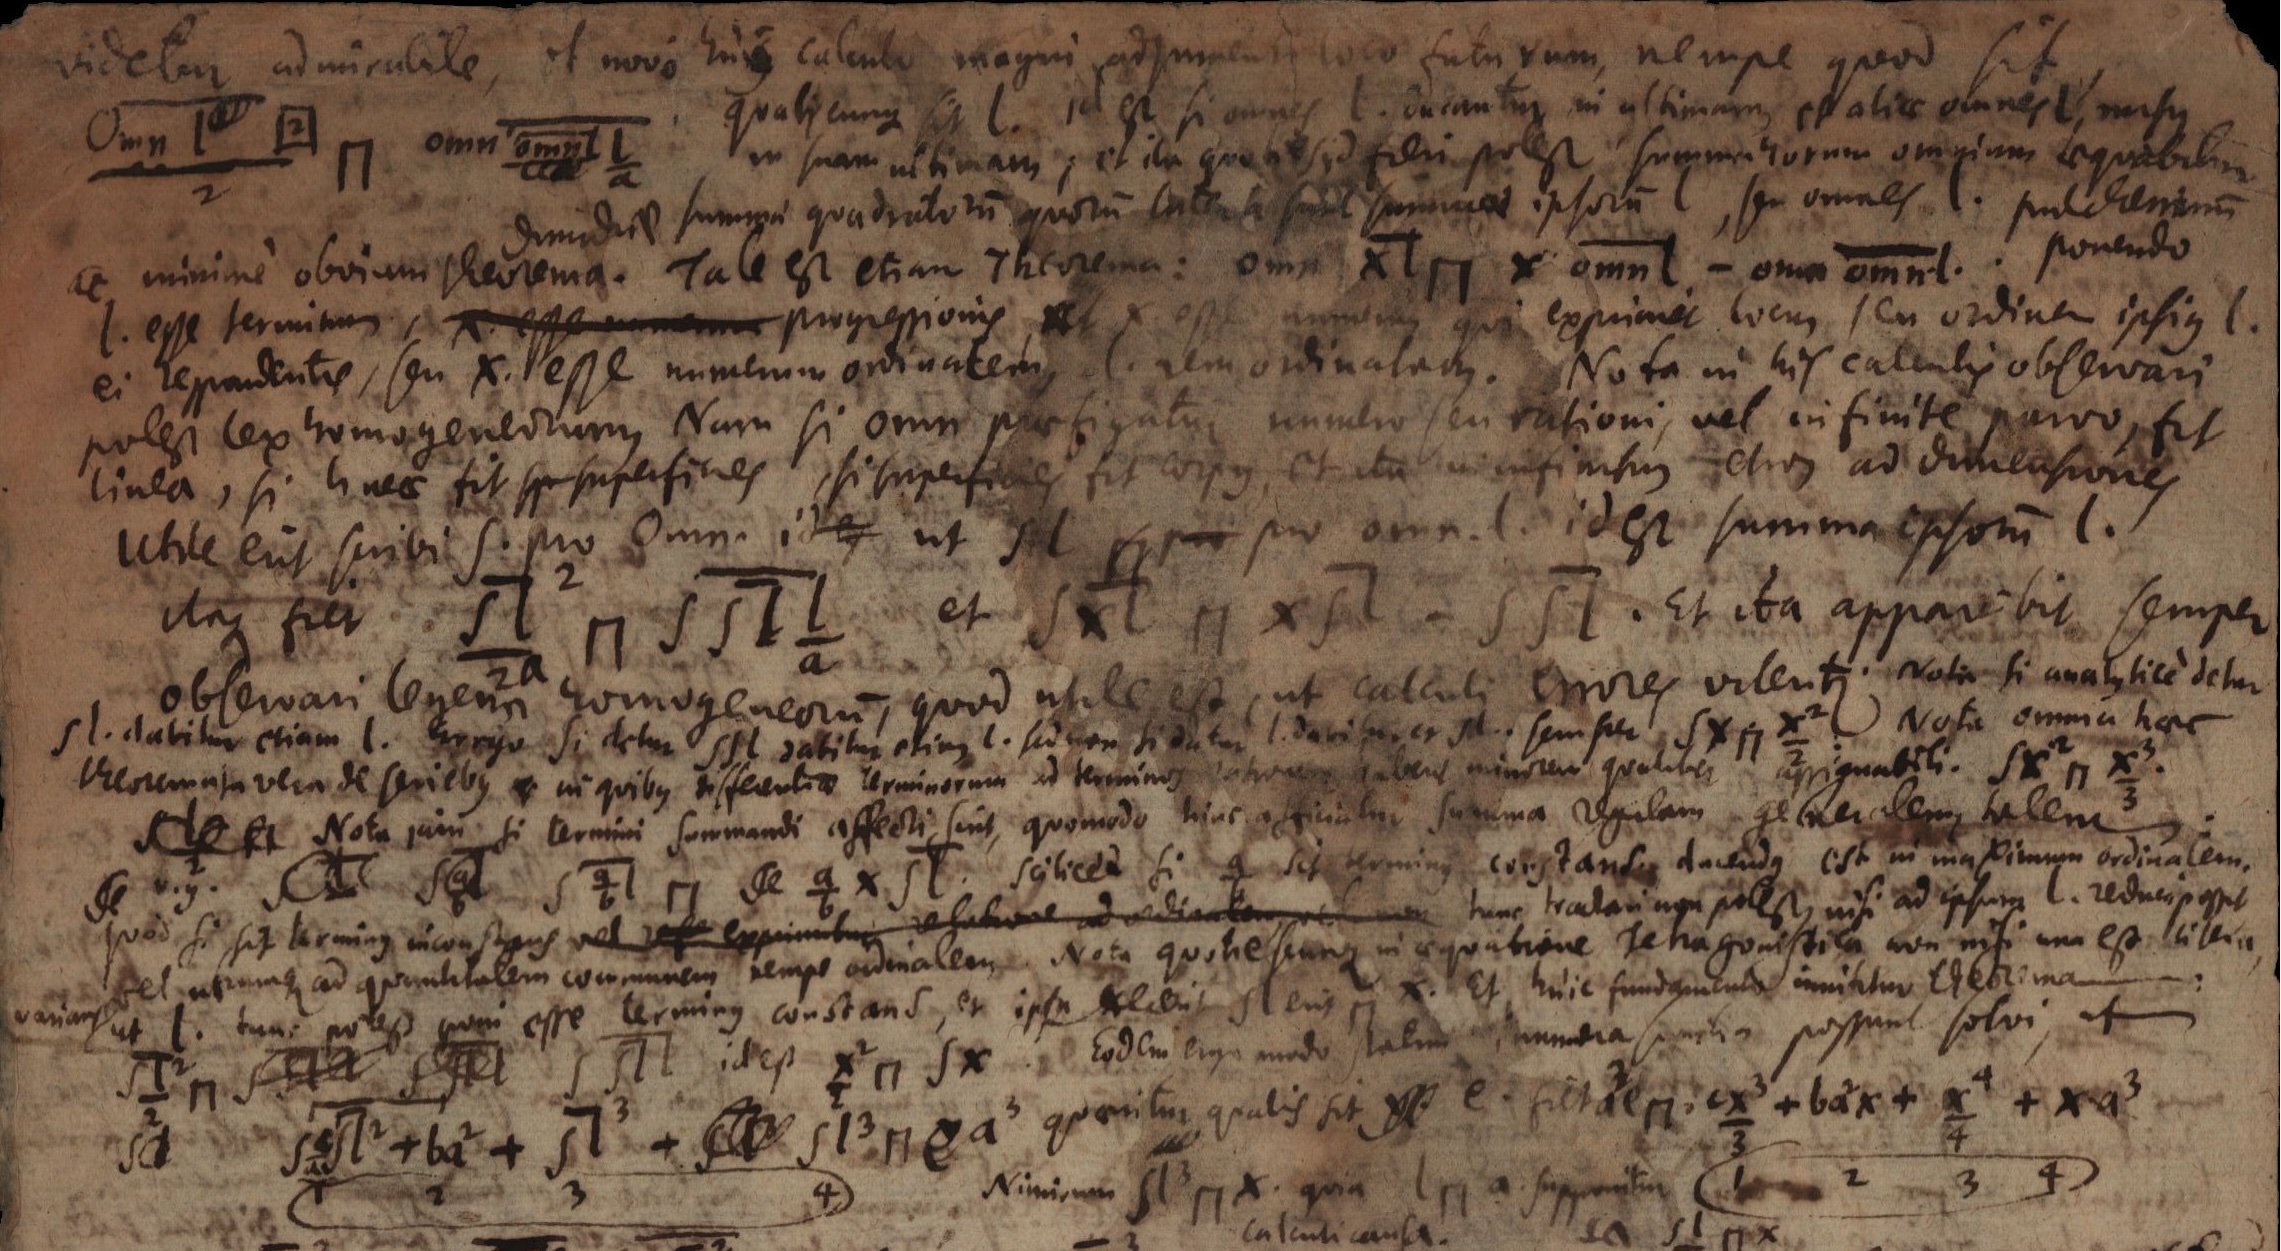 videtur admirabile, et novo huic calculo magni adjumenti loco futurum, nempe quod sit
Omn l [2] / 2 ⊓ omn omn l l/a , qualiscunq sit l. id est si omnes l. ducantur in ultimam, et aliae omnes l, rursq
in suam ultimam, et ita quoties id fieri potest summa horum omnium aequabitur
dimidiae summae quadratorū quorū latera sunt summae ipsorū l, seu omnes l. pulcherrimū
ac minimè obvium theorema. Tale est etiam Theorema: omn xl ⊓ x omn l − omn omn l. ponendo
l. esse terminum, progressionis et x esse numerum qui exprimit locum seu ordinem ipsiq l.
ei respondentis, seu x. esse numerum ordinalem, l. rem ordinatam. Nota in his calculis observari
potest lex homogeneorum Nam si omn praefigatur numero seu rationi, vel infinite parvo, fit
linea, si lineae fit superficies, si superficiei fit corpq, et ita in infinitum etiam ad dimensiones
Utile erit scribi ∫. pro Omn. ut ∫l pro omn. l. id est summa ipsorū l.
Itaq fiet ∫l² / 2a ⊓ ∫ ∫l l/a et ∫xl ⊓ x∫l − ∫∫l. Et ita apparebit semper
observari legem homogeneorū, quod utile est, ut calculi errores vitentur. Nota si analyticè detur
∫l. dabitur etiam l. Ergo si detur ∫∫l dabitur etiam l. sed non si datur l. dabitur et ∫l. semper ∫x ⊓ x²/2 Nota omnia haec
theoremata vera de seriebq in quibq differentiae terminorum ad terminos rationem habent minorem qualibet assignabili. ∫x² ⊓ x³/3.
Nota jam si termini summandi affecti sint, quomodo hinc afficiatur summa regulam generalem talem
v.g. ∫ a/b l ⊓ a/b x ∫l. scilicet si a/b sit terminq constans, ducendq est in maximum ordinalem.
quod si sit terminq inconstans tunc tractari non potest, nisi ad ipsum l. reduci possit
vel utrumq ad quantitatem communem nempe ordinalem. Nota quotiescunq in aequatione Tetragonistica non nisi una est litera,
varians ut l. tunc potest poni esse terminq constans, et ipsa ∫l erit ⊓ x. Et huic fundamento innititur theorema:
∫l²/2 ⊓ ∫ ∫l l id est x²/2 ⊓ ∫x. Eodem ergo modo statim innumera possunt solvi, ut
∫ c∫l² + ba² + ∫l³ + ∫l³ ⊓ ea³ quaeritur qualis sit e. fiet a³e ⊓ cx³/3 + ba²x + x⁴/4 + xa³
1 2 3 4 Nimirum ∫l³ ⊓ x. quia l ⊓ a. supponitur 1 2 3 4
calculi causa. ∫l ⊓ x